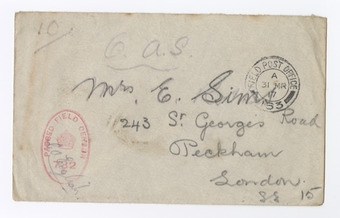 10
O.A.S.
FIELD POST OFFICE
A
31 MR
17
Mrs. E. Sim
243 St Georges Road
Peckham
London
S.E 15
PASSED FIELD CENSOR